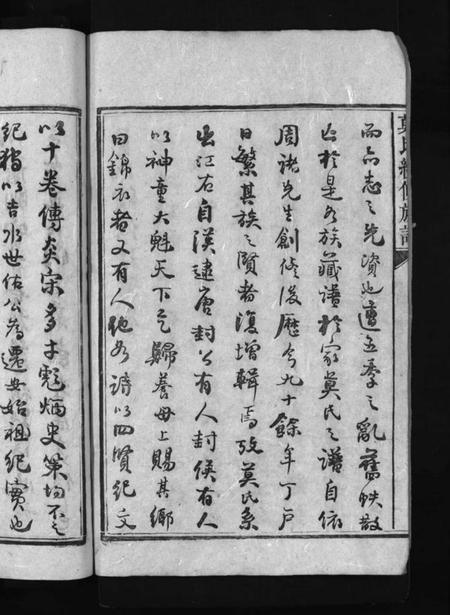 莫氏續修族譜
而亦志之先資也遭五季之亂舊帙散
亡於是各族藏譜於家莫氏之譜自依
周諸先生創修後歷今九十餘年丁戶
日繁其族之賢者復增輯焉攷莫氏系
出江右自漢逮唐封公有人封侯有人
以神童大魁天下乞歸養母上賜其鄉
曰錦衣者又有人他如詩以四賢紀文
以十卷傳炎宋多士彪炳史策均不之
紀獨以吉水世佑公為遷安始祖紀實也